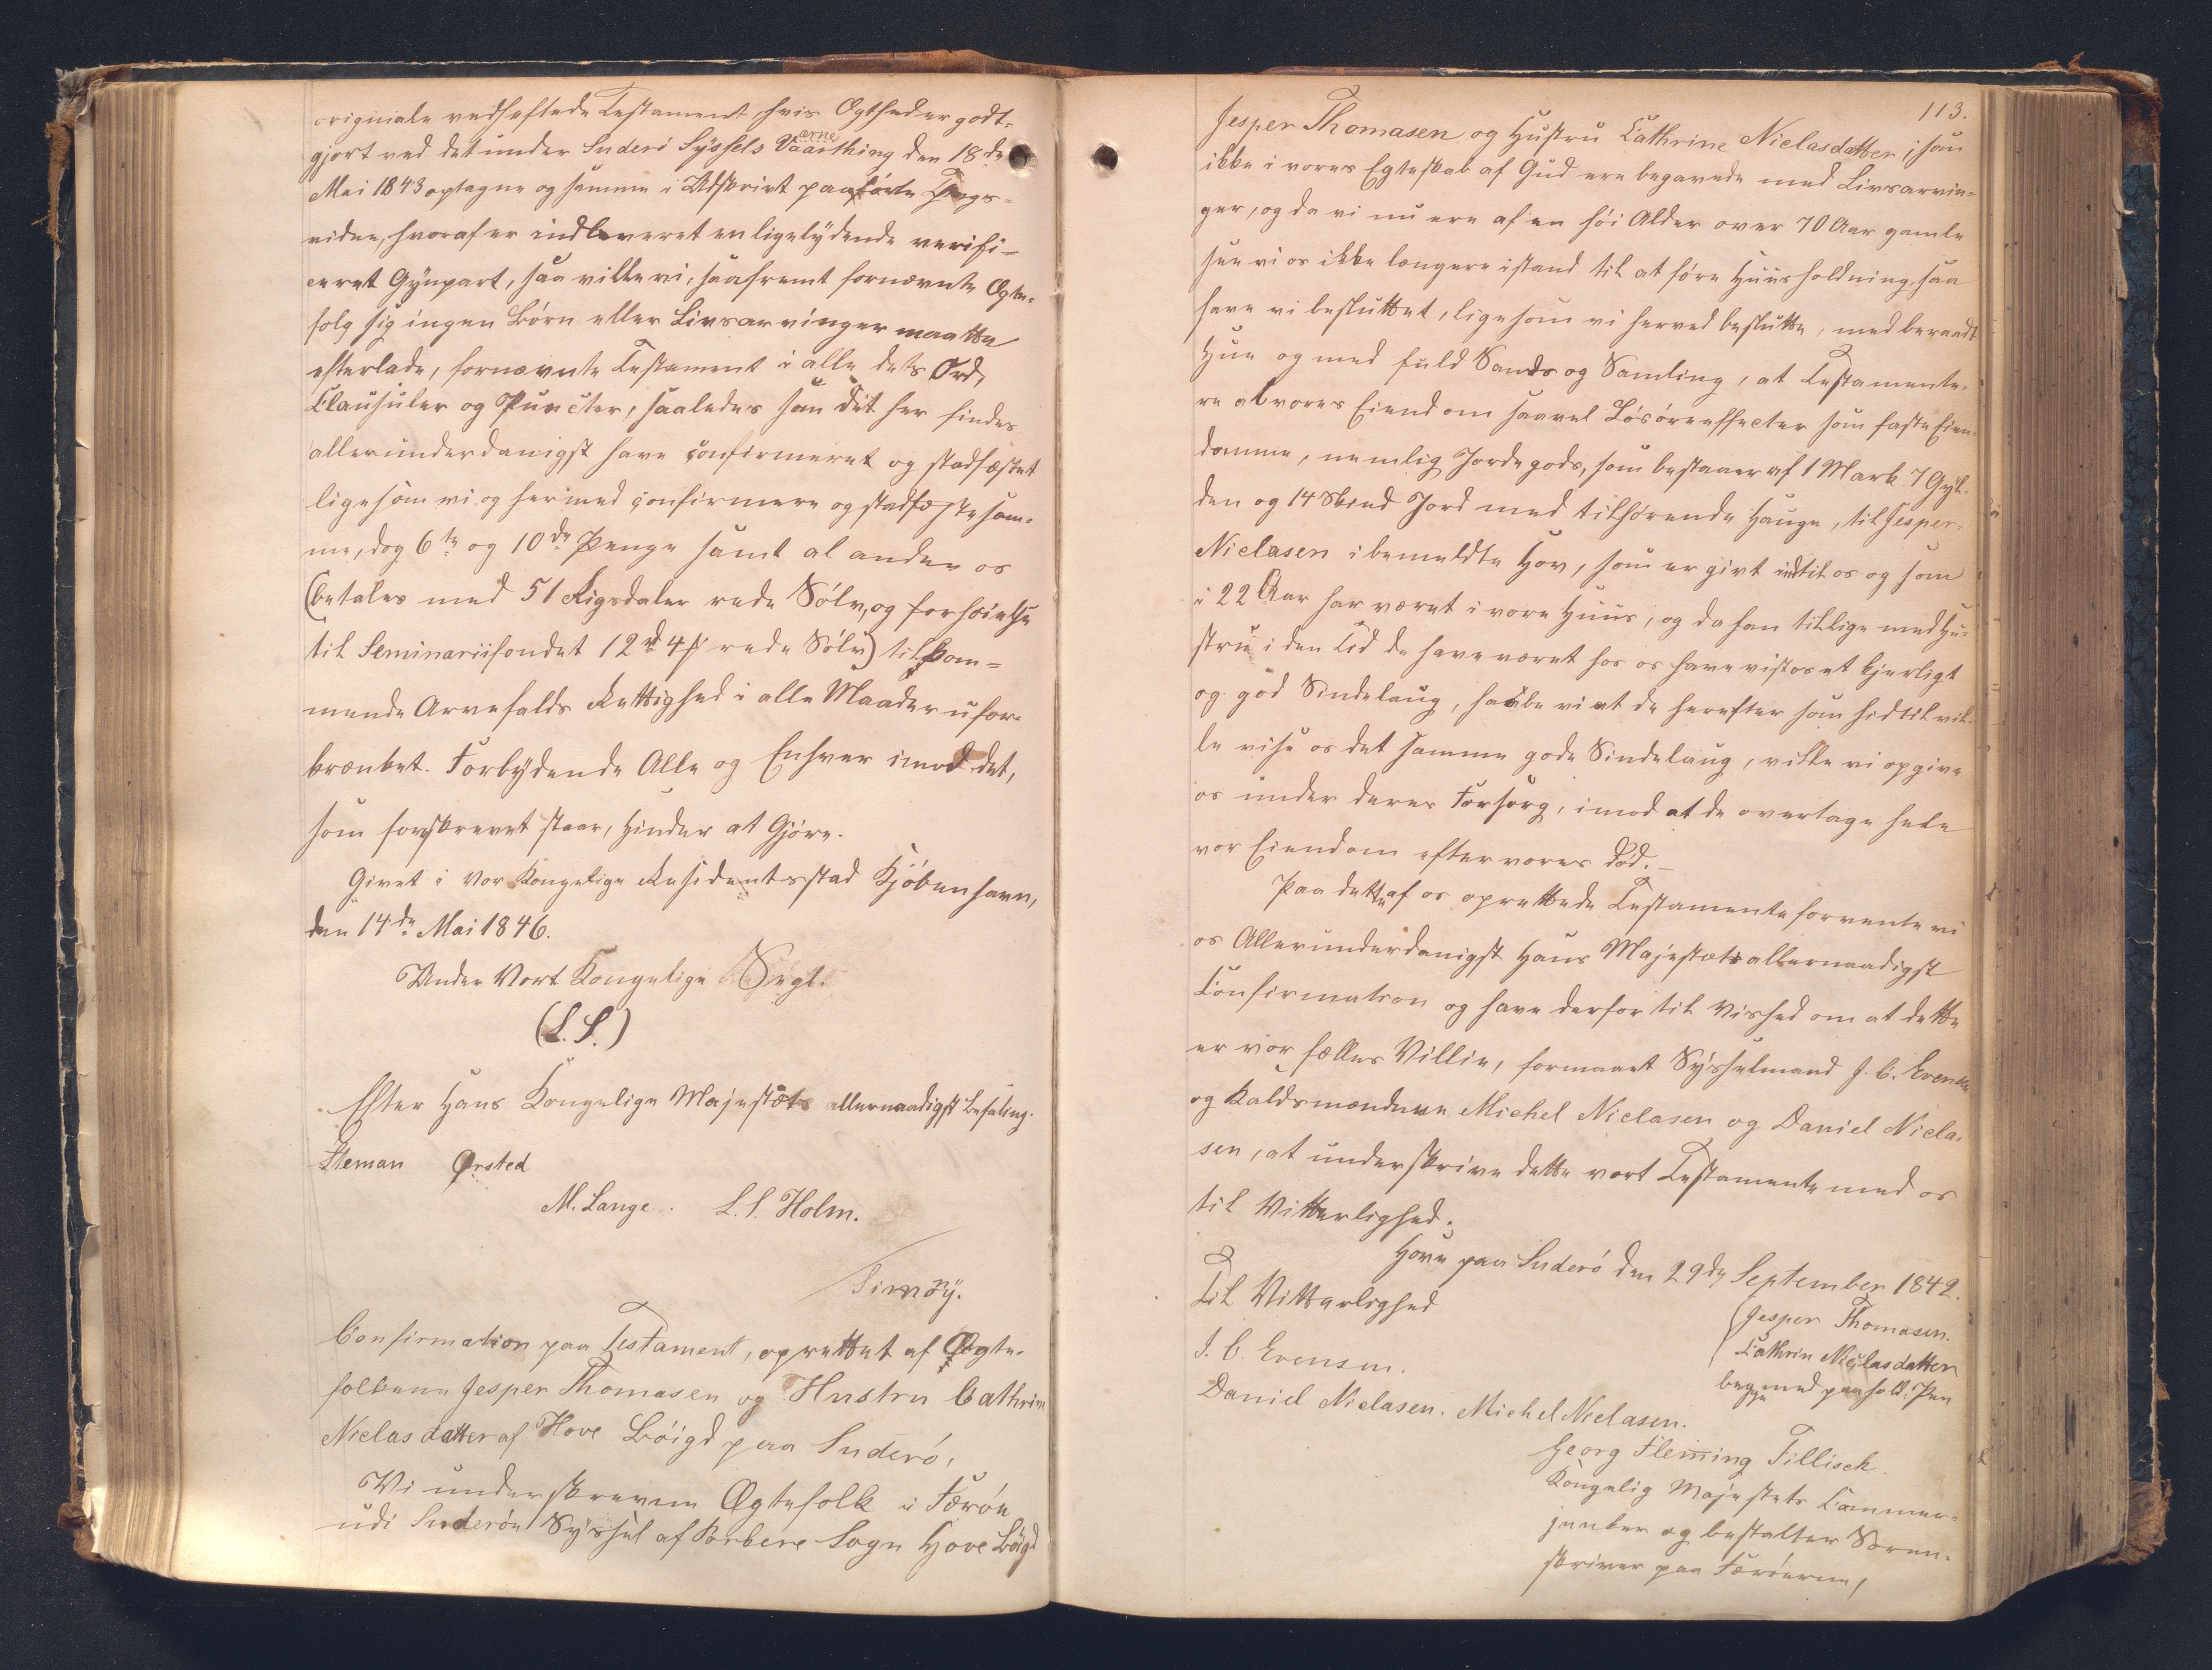 originale vedheftede Testament hvis Ægthed er godt-
gjort ved det under Suderø Syssels Vaarthing den 18de
arne
Mai 1843 optagne og samme i Udskrivt paaførte Tings-
vidne, hvoraf er indleveret en ligelydende verifi-
ceret Gjenpart, saa ville vi, saafremt fornævnte Ægte-
folg sig ingen Børn eller Livsarvinger maatte
efterlade, fornævnte Testament i alle dets Ord,
Clausuler og Puncter, saaledes som det her findes
allerunderdanigst have confirmeret og stadfæstet
ligesom vi og hermed confirmere og stadfæste sam-
me, dog 6te og 10de Penge samt al anden os
(betales med 51 Rigsdaler rede Sølv, og forhøielse
til Seminariifondet 12 rd 4 ß rede Sølv) tilkom-
mende Arvefalds Rettighed i alle Maader ufor-
krænket. Forbydende Alle og Enhver imod det,
som forskrevet staaer, Hinder at Gjøre.
Givet i Vor Kongelige Residentsstad Kjøbenhavn,
den 14de Mai 1846.
Under Vort Kongelige Segl.
(L.S.)
Efter Hans Kongelige Majestæts allernaadigst Befaling.
Steman Ørsted
M. Lange. L. S. Holm.
Confirmation paa Testament, oprettet af Ægte-
folkene Jesper Thomasen og Hustru Cathrine
Niclasdatter af Hove Bøigd paa Suderø,
Vi underskrevne Ægtefolk i Færøe
udi Suderøe Syssel af Porkere Sogn Hove Bøigd
113.
Jesper Thomasen og Hustru Cathrine Niclasdatter, som
ikke i vores Egteskab af Gud ere begavede med Livsarvin-
ger, og da vi nu ere af en høi Alder over 70 Aar gamle
see vi os ikke længere istand til at føre Huusholdning, saa
have vi besluttet, ligesom vi herved beslutte, med beraadt
Hue og med fuld Sands og Samling, at Testamente-
re al vores Eiendom saavel Løsøreeffecter som faste Eien-
domme, nemlig Jordegods, som bestaaer af 1 Mark 7 Gyl-
den og 14 Skind Jord med tilhørende Hauge, til Jesper
Niclasen i bemeldte Hov, som er givt ind til os og som
i 22 Aar har været i vore Huus, og da han tillige med Hu-
stru i den Tid de have været hos os have vist os et kjerligt
og god Sindelaug, haabe vi at de herefter som hidtil vil-
le vise os det samme gode Sindelaug, ville vi opgive
os under deres Forsorg, imod at de overtage hele
vor Eiendom efter vores Død.
Paa dette af os oprettede Testamente forvente vi
os Allerunderdanigst Hans Majestæts allernaadigst
Confirmation og have derfor til Vished om at dette
er vor fælles Villie, formaaet Sysselmand J. C. Evensen
og Kaldsmændene Michel Niclasen og Daniel Nicla-
sen, at underskrive dette vort Testamente med os
til Vitterlighed.
Hove paa Suderø den 29de September 1842.
Til Vitterlighed
Jesper Thomasen.
J. C. Evensen.
Cathrin Niclasdatter
begge med paahold. Pen
Daniel Niclasen. Michel Niclasen.
Georg Fleming Tillisch
Kongelig Majestets Cammer-
junker og bestalter Soren-
skriver paa Færøerne,